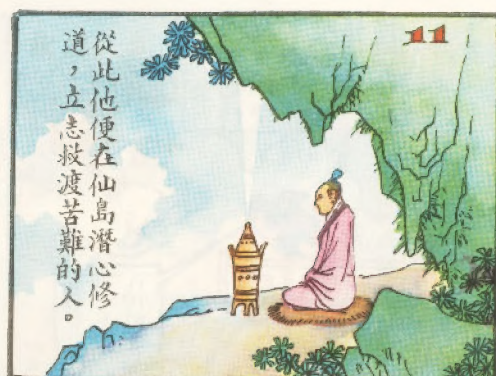 從此他便在仙島潛心修
道，立志救渡苦難的人。
11